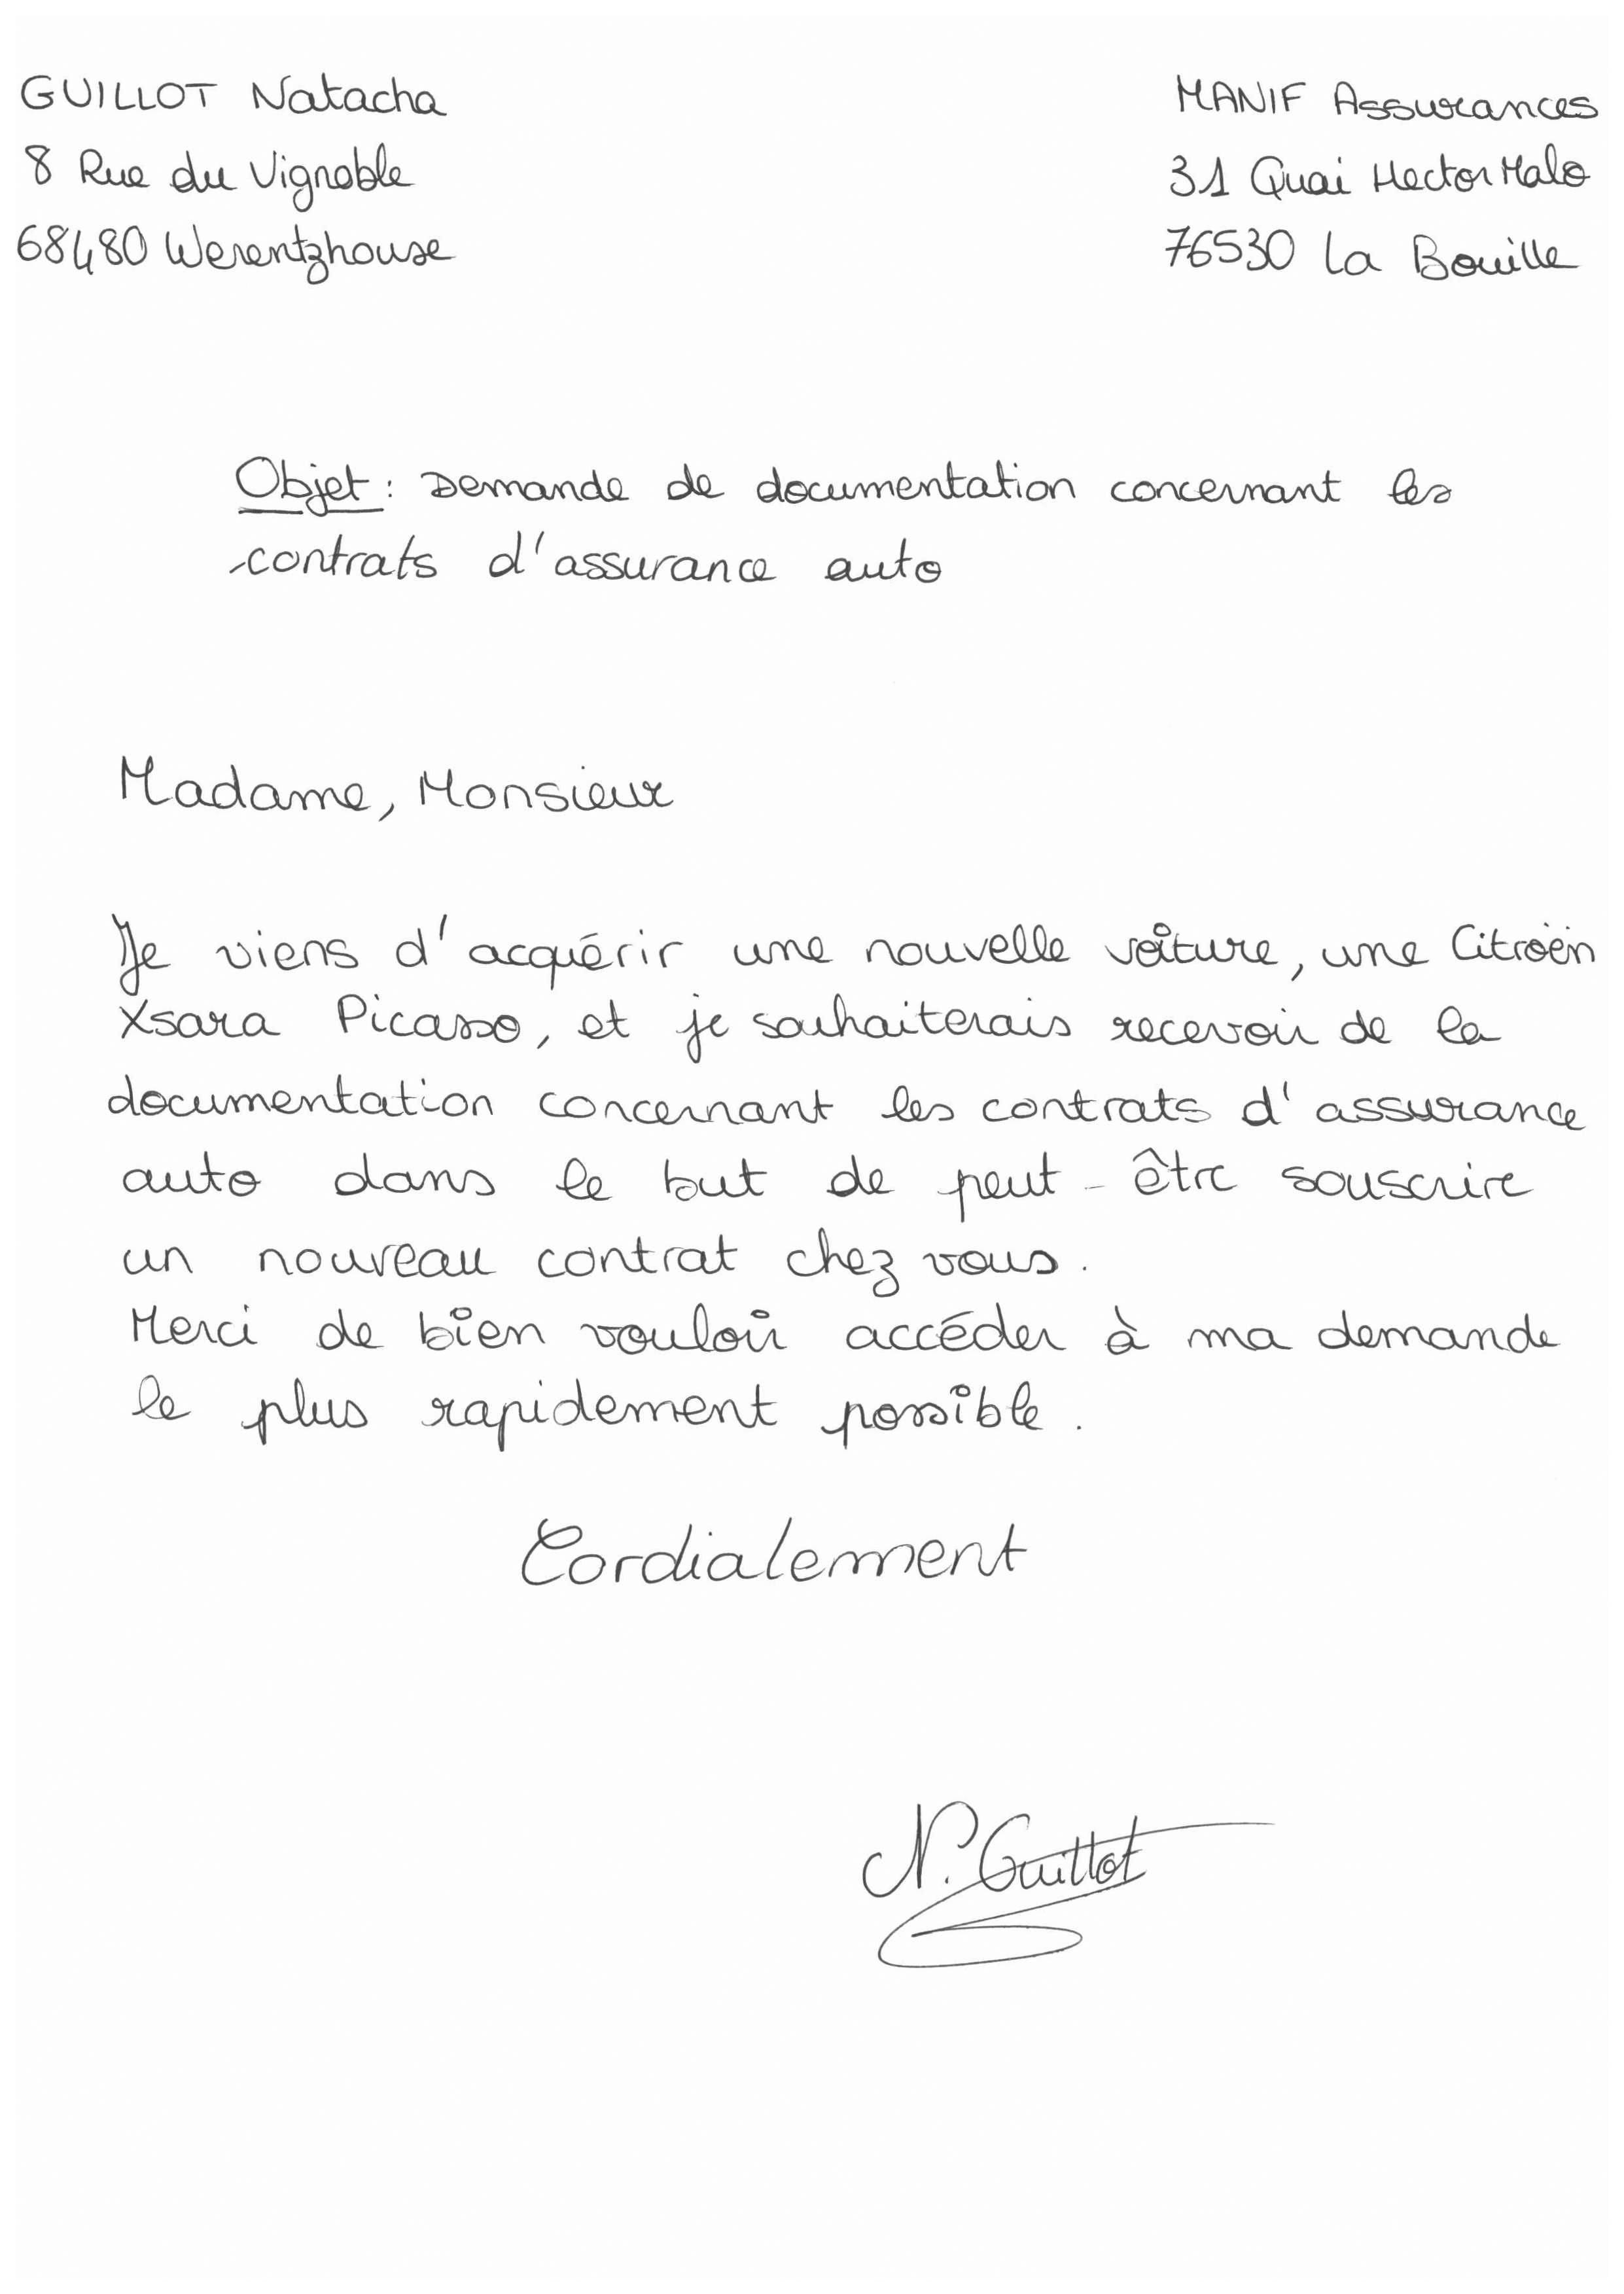 GUILLOT Natacha
8 Rue du Vignoble
68480 Werentzhouse
MANIF Assurances
31 Quai Hector Malo
76530 La Bouille
Objet : Demande de documentation concernant les
contrats d'assurance auto
Madame, Monsieur
Je viens d'acquérir une nouvelle voiture, une Citroën
Xsara Picasso, et je souhaiterais recevoir de la
documentation concernant les contrats d'assurance
auto dans le but de peut-être souscrire
un nouveau contrat chez vous.
Merci de bien vouloir accéder à ma demande
le plus rapidement possible.
Cordialement
N. Guillot